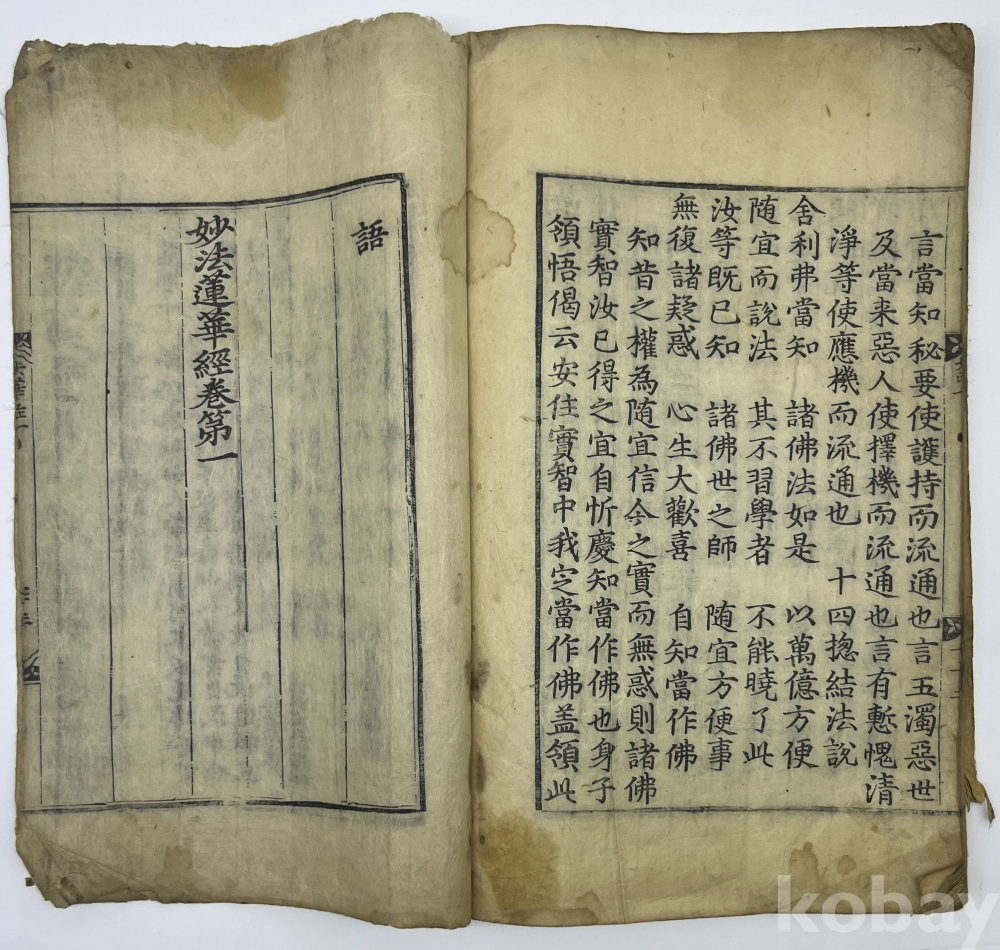 言當知秘要使護持而流通也言五濁惡世
及當来惡人使擇機而流通也言有慙愧清
淨等使應機而流通也 十四揔結法說
舍利弗當知 諸佛法如是 以萬億方便
随宜而說法 其不習學者 不能曉了此
汝等既已知 諸佛世之師 随宜方便事
無復諸疑惑 心生大歡喜 自知當作佛
知昔之權為随宜信今之實而無惑則諸佛
實智汝已得之宜自忻慶知當作佛也身子
領悟偈云安住實智中我定當作佛盖領此
語
妙法蓮華經卷第一
kobay